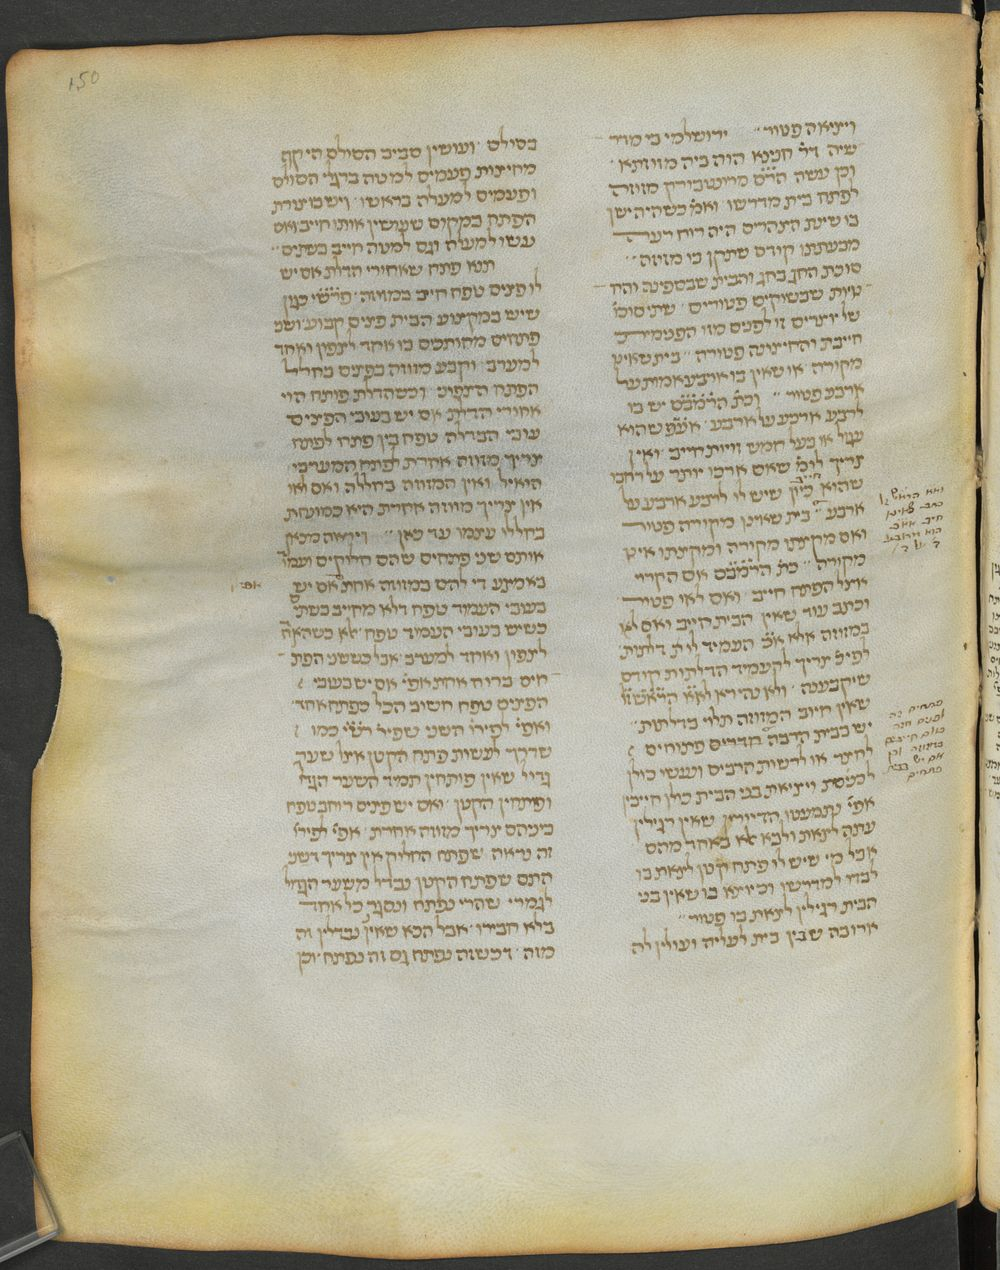 150
ויציאה פטור ״ ירושלמי בי מדר
שיה דר׳ חנינא הוה ביה מזוזתא ׳
וכן עשה הר״ם מרוטנבורק מזוזה
לפתח בית מדרשו ׳ ואמ׳ כשהיה ישן
בו שינת הצהרים היה רוח רעה
מבעתתנו קודם שתקן בו מזוזה ״
סוכת החג בחג והבית שבספינה והח
נויות שבשוקים פטורים ׳ שתי סוכו׳
של יוצרים זו לפנים מזו הפנימית
חייבת והחיצונה פטורה ״ בית שאין
מקורה או שאין בו ארבע אמות על
ארבע פטור ״ וכת׳ הרמב״ם יש בו
לרבע ארבע על ארבע ׳ אע״פ שהוא
עגול או בעל חמש זויות חייב ׳ ואין
צריך לומ׳ שאם ארכו יותר על רחבו
שהוא חייב כיון שיש לו לרבע ארבע על
ארבע ״ בית שאינו מקורה פטור
ואם מקצתו מקורה ומקצתו אינו
מקורה ״ כת׳ הרמב״ם אם הקרוי
אצל הפתח חייב ׳ ואם לאו פטור
וכתב עוד שאין הבית חייב ואם לאו
במזוזה אלא א״כ העמיד לו ית׳ דלתות
לפיכ׳ צריך להעמיד הדלתות קודם
שיקבענה ׳ ולא נהירא לא״א הרא״ש ז״ל
שאין חיוב המזוזה תלוי בדלתות ״
יש בבית הרבה חדרים פתוחים
לחצר או לרשות הרבים ונעשי כולן
לכניסת ויציאת בני הבית כולן חייבין
אפי׳ נתמעטו הדיורין שאין רגילין
עתה לצאת ולבא לא באחד מהם
אבל מי שיש לו פתח קטן לצאת בו
לבדו למדרשו וכיוצא בו שאין בני
הבית רגילין לצאת בו פטור ״
ארובה שבין בית לעליה ועולין לה
בסולם ׳ ועושין סביב הסולם היקף
מחיצות פעמים למטה ברגלי הסולם
ופעמים למעלה בראשו ׳ ויש בו צורת
הפתח במקום שעושין אותו חייב ואם
עשו למעלה וגם למטה חייב בשנים ״
תנא פתח שאחורי הדלת אם יש
לו פצים טפח חייב במזוזה ׳ פרש״י כגון
שיש במקצוע הבית פצים קבוע ושני
פתחים מחותכים בו אחד לצפון ואחד
למערב ׳ וקבע מזוזה בפצים בחלל
הפתח הצפוני ׳ וכשהדלת פותח הוי
אחורי הדלת אם יש בעובי הפצים
עובי הבדלה טפח בין פתח לפתח
צריך מזוזה אחרת לפתח המערבי ׳
הואיל ואין המזוזה בחללה ואם לאו
אין צריך מזוזה אחרת היא כמונחת
בחללו עצמו עד כאן ״ ויראה מכאן
אותם שני פתחים שהם חלוקים ועמוד
באמצע די להם במזוזה אחת אפי׳ אם יש
בעובי העמוד טפח דלא מחייב בשתי׳
כשיש בעובי העמוד טפח ׳ לא כשהאח׳
לצפון ואחד למערב אבל כששני הפת
חים ברוח אחת אפי׳ אם יש בעובי
הפצים טפח חשוב הכל כפתח אחד ׳
ואפי׳ לפירו׳ השני שפיר׳ רש״י כמו
שדרך לעשות פתח הקטן אצל שער
גדול שאין פותחין תמיד השער הגדו׳
ופותחין הקטן ׳ ואם יש פצים רוחב טפח
ביניהם צריך מזוזה אחרת ׳ אפי׳ לפיר׳
זה נראה שפתח החלוק אין צריך דשני
התם שפתח הקטן נבדל משער הגדול
לגמרי ׳ שהרי נפתח ונסגר כל אחד
בלא חבירו ׳ אבל הכא שאין נבדלין זה
מזה ׳ דכשזה נפתח גם זה נפתח ׳ וכן